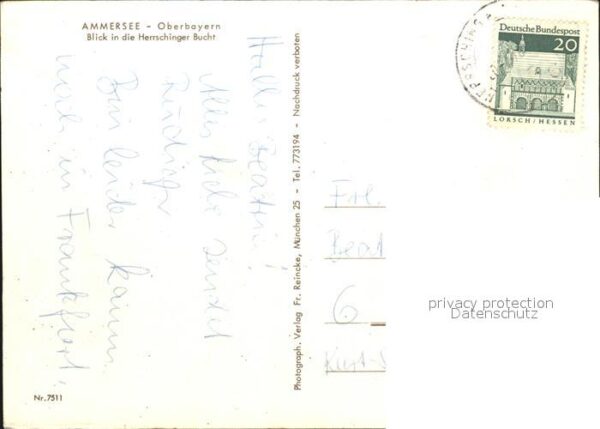 AMMERSEE – Oberbayern
Blick in die Herrschinger Bucht
Hallo
Alles Liebe sendet
Bin leider kaum
noch in Frankfurt.
Photograph. Verlag Fr. Reincke, München 25 - Tel. 773194 - Nachdruck verboten
Nr. 7511
HERRSCHING
Deutsche Bundespost
20
LORSCH/HESSEN
Frl.
Beat
6
Kurt-
privacy protection
Datenschutz